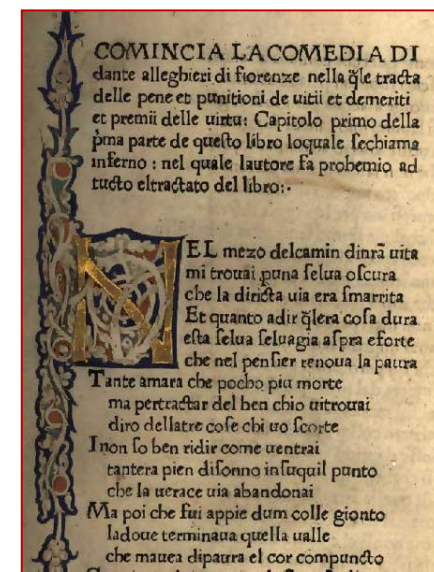 COMINCIA LA COMEDIA DI
dante alleghieri di fiorenze nella q̃le tracta
delle pene et punitioni de uitii et demeriti
et premii delle uirtu: Capitolo primo della
p̃ma parte de queſto libro loquale ſechiama
inferno : nel quale lautore fa prohemio ad
tucto eltractato del libro:·
NEL mezo delcamin dinr̃a uita
mi trouai puna ſelua oſcura
che la diricta uia era ſmarrita
Et quanto adir q̃lera coſa dura
eſta ſelua ſeluagia aſpra eforte
che nel penſier renoua la paura
Tante amara che pocho piu morte
ma pertractar del ben chio uitrouai
diro dellatre coſe chi uo ſcorte
I non ſo ben ridir come uentrai
tantera pien diſonno inſuquil punto
che la uerace uia abandonai
Ma poi che fui appie dum colle gionto
ladoue terminaua quella ualle
che mauea dipaura el cor compuncto